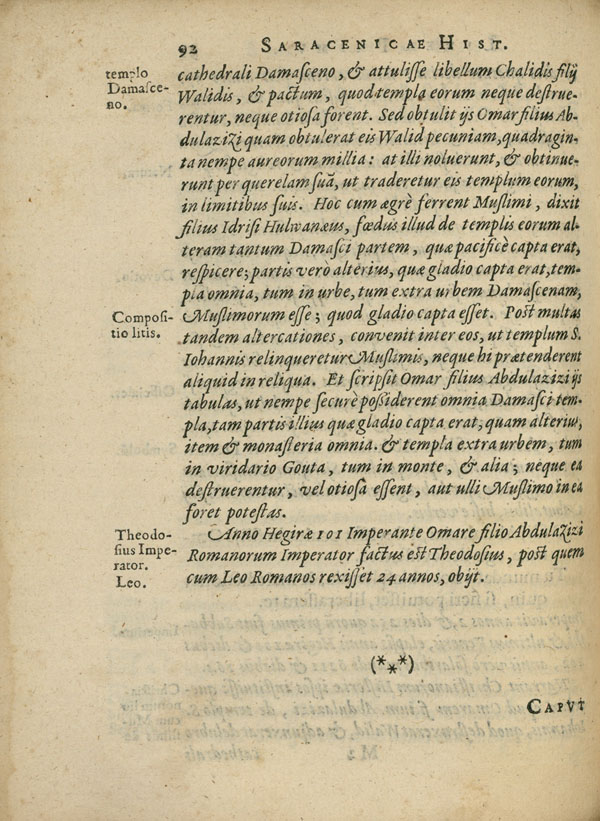 92 SARACENICAE HIST.
templo
Damasce-
no.
cathedrali Damasceno, & attulisse libellum Chalidis filij
Walidis, & pactum, quod templa eorum neque destrue-
rentur, neque otiosa forent. Sed obtulit ijs Omar filius Ab-
dulazizi quam obtulerat eis Walid pecuniam, quadragin-
ta nempe aureorum millia: at illi noluerunt, & obtinue-
runt per querelam suā, ut traderetur eis templum eorum,
in limitibus suis. Hoc cum ægrè ferrent Muslimi, dixit
filius Idrisi Hulwanæus, fœdus illud de templis eorum al-
teram tantum Damasci partem, quæ pacificè capta erat,
respicere; partis verò alterius, quæ gladio capta erat, tem-
pla omnia, tum in urbe, tum extra urbem Damascenam,
Muslimorum esse; quod gladio capta esset. Post multas
Composi-
tio litis.
tandem altercationes, convenit inter eos, ut templum S.
Iohannis relinqueretur Muslimis, neque hi prætenderent
aliquid in reliqua. Et scripsit Omar filius Abdulazizi ijs
tabulas, ut nempe securè possiderent omnia Damasci tem-
pla, tam partis illius quæ gladio capta erat, quam alterius,
item & monasteria omnia. & templa extra urbem, tum
in viridario Gouta, tum in monte, & alia; neque ea
destruerentur, vel otiosa essent, aut ulli Muslimo in ea
foret potestas.
Theodo-
sius Impe-
rator.
Leo.
Anno Hegiræ 101 Imperante Omare filio Abdulazizi
Romanorum Imperator factus est Theodosius, post quem
cum Leo Romanos rexisset 24 annos, obijt.
(***)
CAPVT